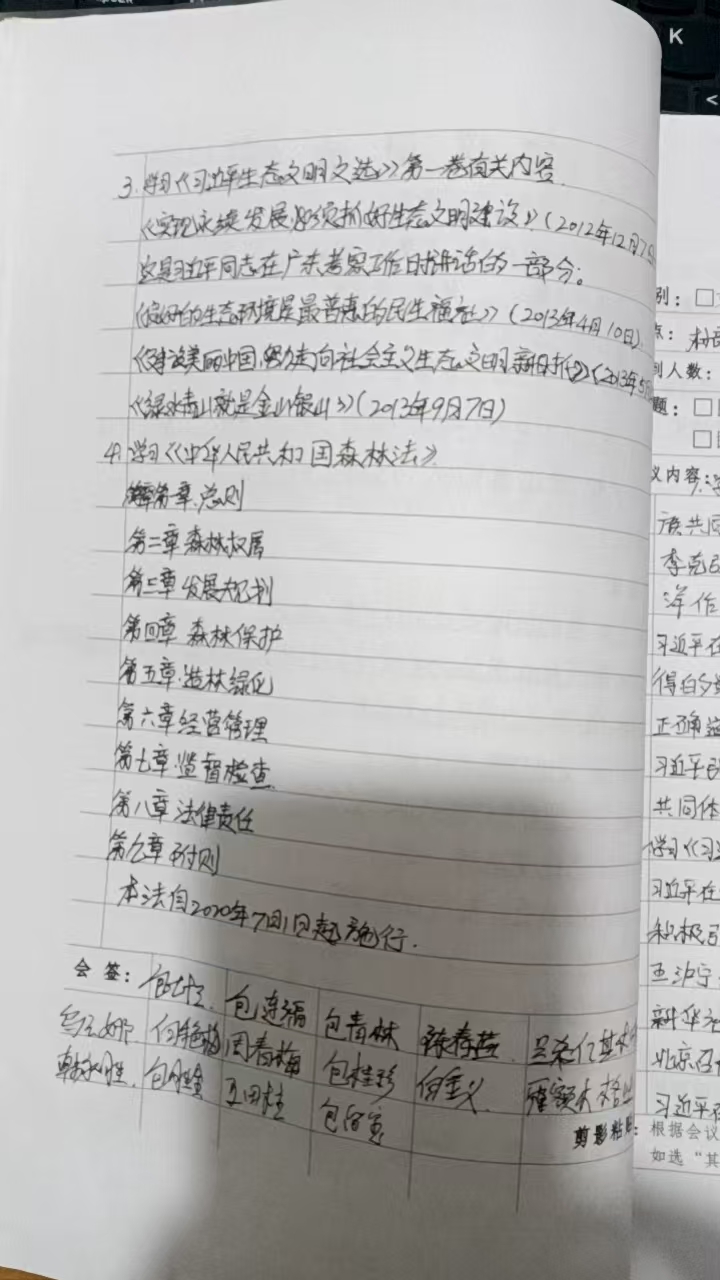 3.学习《习近平生态文明文选》第一卷有关内容.
《实现永续发展必须抓好生态文明建设》(2012年12月7
这是习近平同志在广东考察工作时讲话的一部分。
《良好的生态环境是最普惠的民生福祉》(2013年4月10日)
《建设美丽中国,努力走向社会主义生态文明新时代》(2013年5
《绿水青山就是金山银山》(2013年9月7日)
4.学习《中华人民共和国森林法》
第一章.总则
第二章 森林权属
第三章 发展规划
第四章 森林保护
第五章.造林绿化
第六章 经营管理
第七章.监督检查
第八章 法律责任
第九章 附则
本法自2020年7月1日起施行.
会签:
包连福 包青林 陈春燕
周春梅 包桂珍
王田柱
剪影粘贴:
别:□
点:
到人数:
题:□
□
议内容:
李克
习近平在
得的
正确
习近平
共同体
学习《习
习近平在
积极
王沪宁
新华社
北京召
习近平
根据会议
如选“其
K